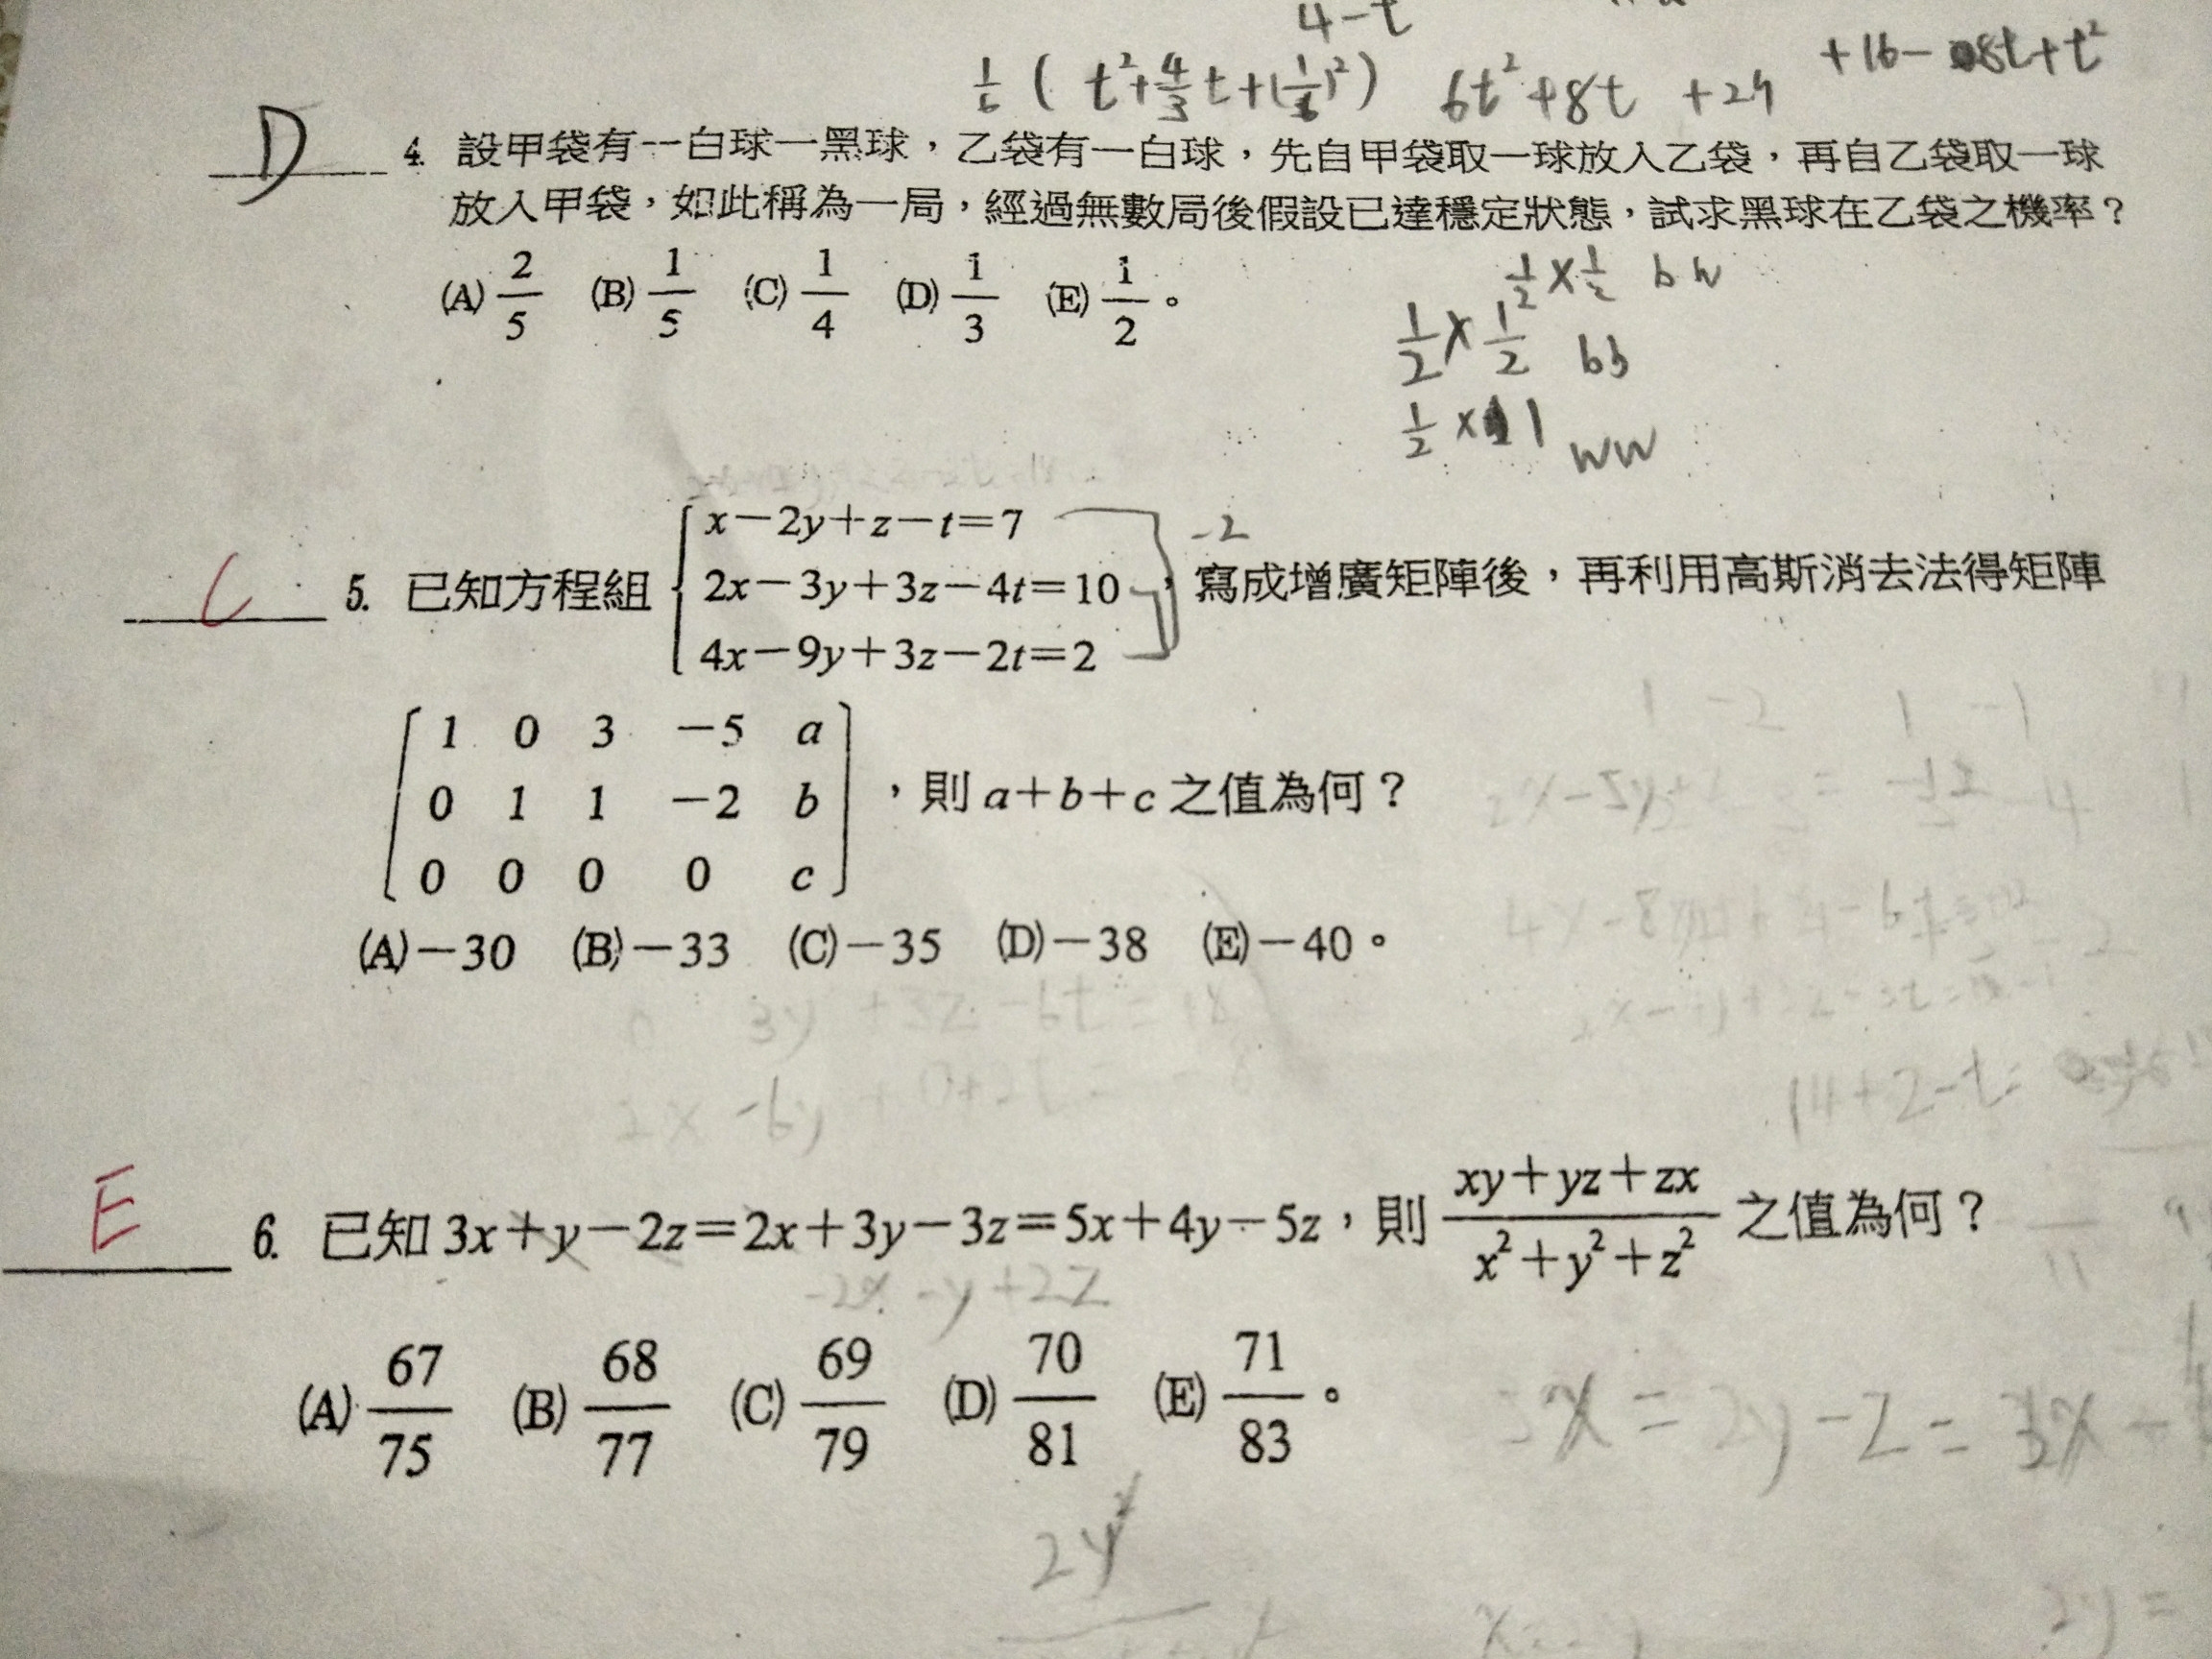 4-t
1/6 ( t²+4/3 t+(1/3)²) 6t²+8t +24 +16-8t+t²
D 4. 設甲袋有一白球一黑球，乙袋有一白球，先自甲袋取一球放入乙袋，再自乙袋取一球
放入甲袋，如此稱為一局，經過無數局後假設已達穩定狀態，試求黑球在乙袋之機率？
(A) 2/5 (B) 1/5 (C) 1/4 (D) 1/3 (E) 1/2。
1/2 × 1/2 b w
1/2 × 1/2 bb
1/2 × 1 ww
x－2y＋z－t＝7
-2
C 5. 已知方程組 2x－3y＋3z－4t＝10，寫成增廣矩陣後，再利用高斯消去法得矩陣
4x－9y＋3z－2t＝2
1 0 3 －5 a
0 1 1 －2 b ，則 a＋b＋c 之值為何？
0 0 0 0 c
(A)－30 (B)－33 (C)－35 (D)－38 (E)－40。
3y +3z -6t = 18
2x -6y
14+2-t=
E 6. 已知 3x＋y－2z＝2x＋3y－3z＝5x＋4y－5z，則 (xy＋yz＋zx)/(x²＋y²＋z²) 之值為何？
-2x -y +2z
(A) 67/75 (B) 68/77 (C) 69/79 (D) 70/81 (E) 71/83。
x = 2y - z =
2y²
2y =